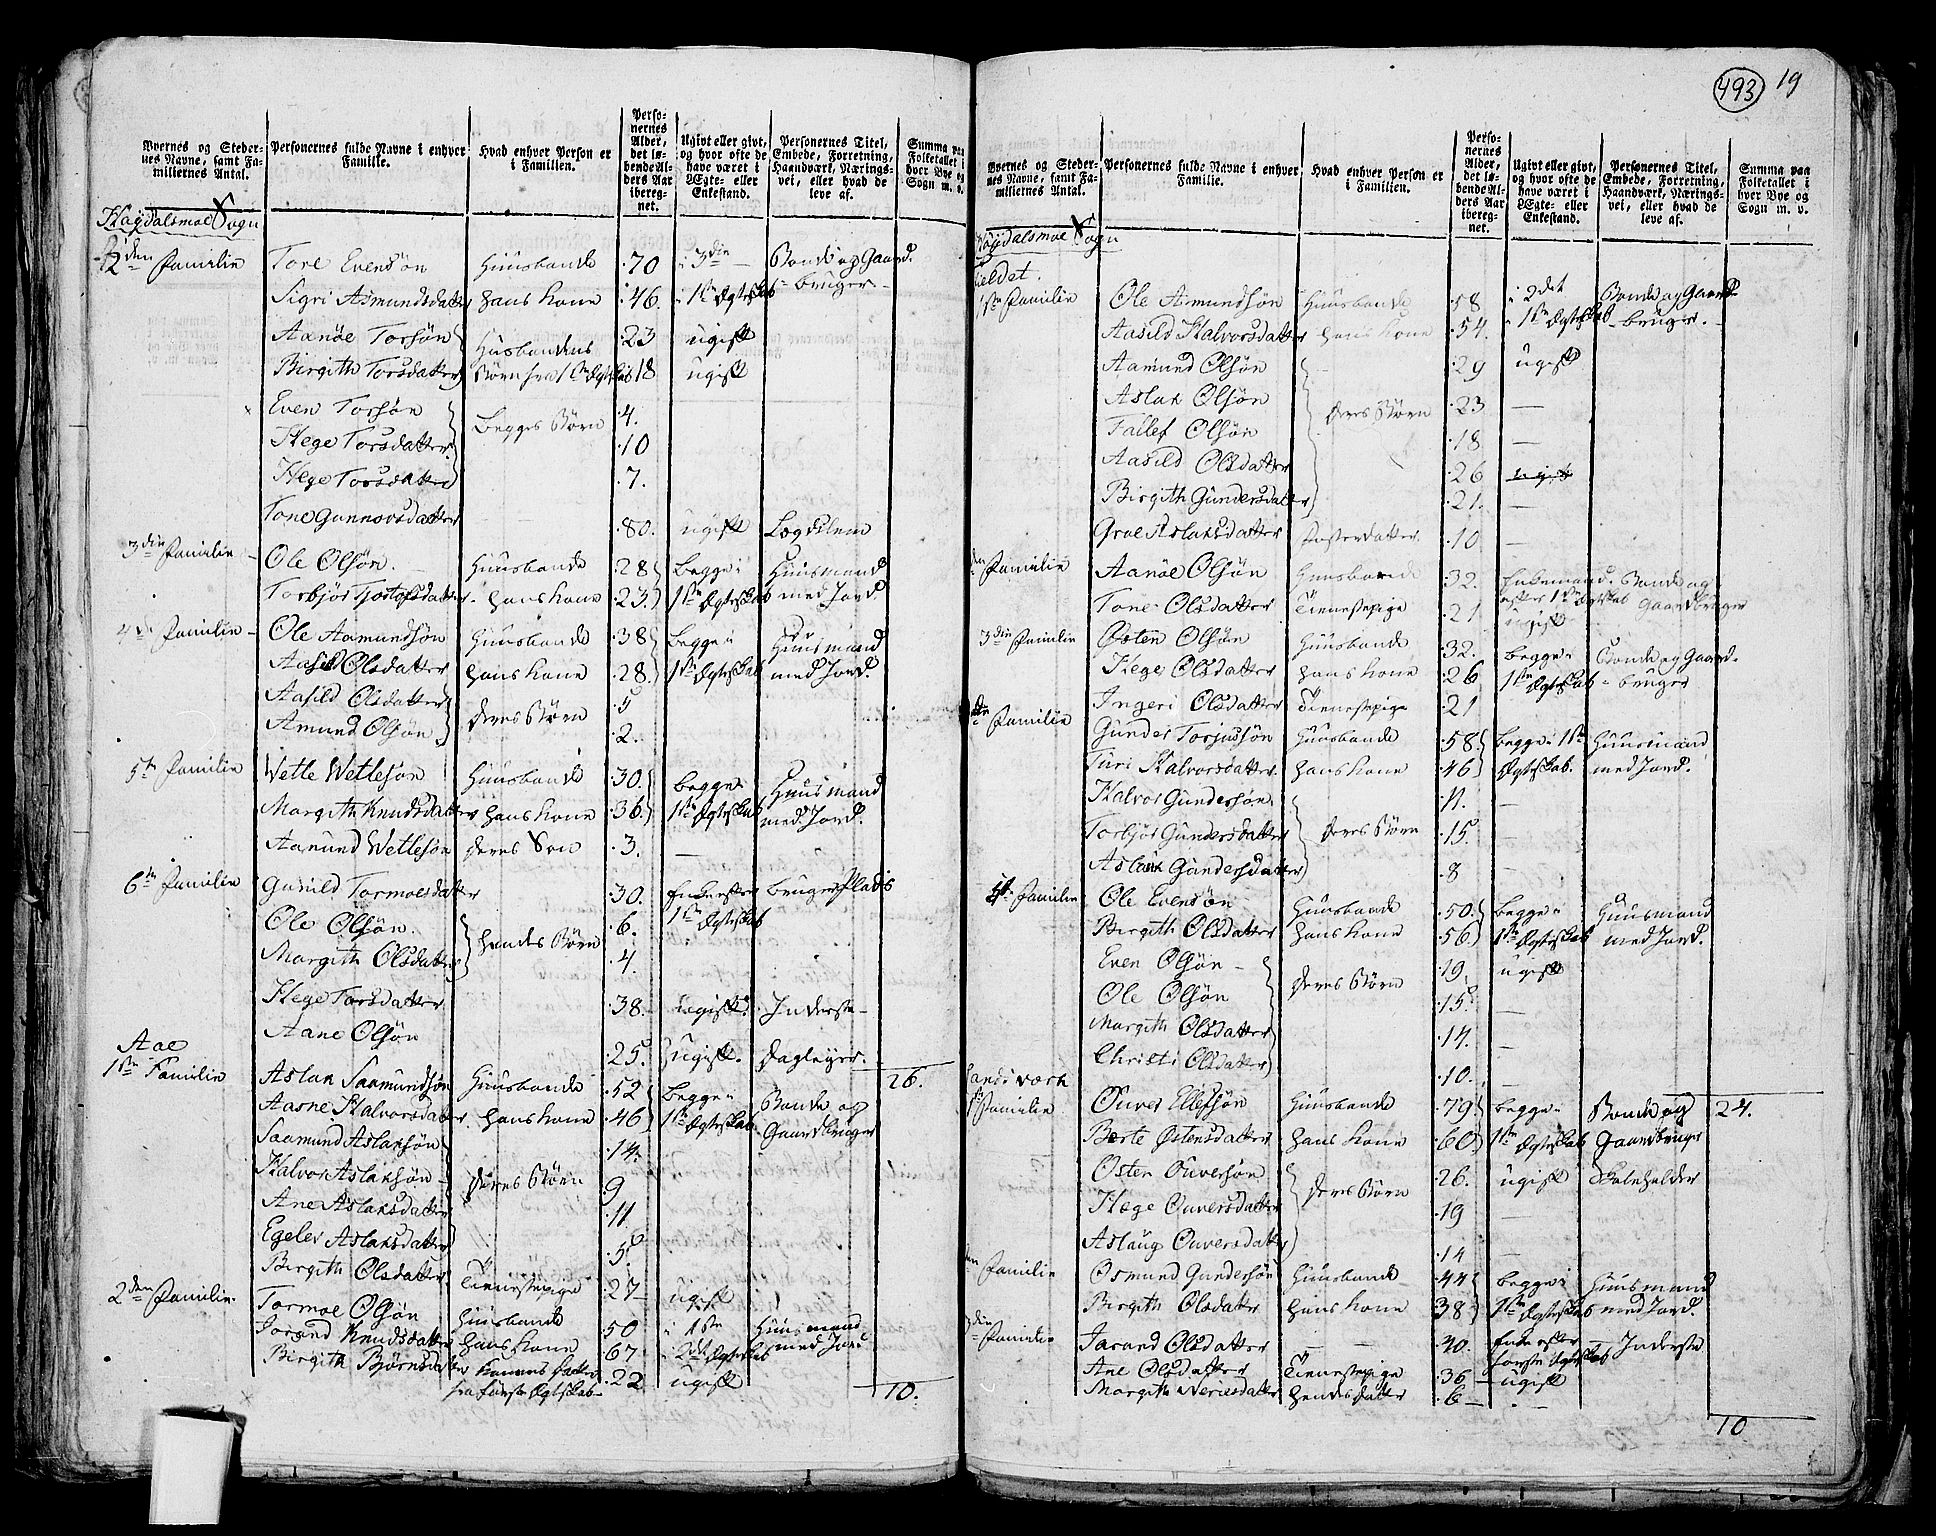 Byernes og Stedernes Navne, samt Familiernes Antal.
Personernes fulde Navne i enhver Familie.
Hvad enhver Person er i Familien.
Personernes Alder, det løbende Alders Aar iberegnet.
Ugivt eller givt, og hvor ofte de have været i Ægte- eller Enkestand.
Personernes Titel, Embede, Forretning, Haandværk, Næringsvei, eller hvad de leve af.
Summa paa Folketallet i hver Bye og Sogn m. v.
Høydalsmoe Sogn
2den Familie Tore Evensøn Huusbonde 70 i 3die Bonde og Gaard-
Sigri Asmundsdatter hans Kone 46 i 1ste Ægteskab bruger
Aanøe Torsøn 23 ugift
Husbondens
Birgith Torsdatter Børn fra 1ste Ægteskab 18 ugift
Even Torsøn 4.
Begges Børn
Hege Torsdatter 10
Hege Torsdatter 7.
Tone Gunnovsdatter 80. ugift Lægdslem
3die Familie Ole Olsøn Huusbonde 28 Begge i Huusmand
Torbjør Tjostofsdatter hans Kone 23 1ste Ægteskab med Jord
4de Familie Ole Aamundsøn Huusbonde 38 Begge i Huusmand
Aasild Olsdatter hans Kone 28. 1ste Ægteskab med Jord.
Aasild Olsdatter 5
deres Børn
Amund Olsøn 2.
5te Familie Wetle Wetlesøn Huusbonde 30. Begge i Huusmand
Margith Knudsdatter hans Kone 36. 1ste Ægteskab med Jord.
Aamund Wetlesøn deres Søn 3. —
6te Familie Gunild Tormoesdatter 30. Enke efter bruger Plads
1ste Ægteskab
Ole Olsøn. 6.
hendes Børn
Margith Olsdatter 4.
Hege Torsdatter 38. ugift Inderste
Aane Olsøn 25. ugift. Dagleyer.
26.
Aae
1ste Familie Aslak Saamundsøn Huusbonde 52 Begge i Bonde og
Aasne Halvorsdatter hans Kone 46 1ste Ægteskab Gaardbruger
Saamund Aslaksøn 14.
Halvor Aslaksøn deres Børn 9
Ane Aslaksdatter 11.
Egelev Aslaksdatter 5
Birgith Olsdatter Tienestepige 27 ugift
2den Familie Tormoe Olsøn Huusbonde 50 i 1ste Huusmand
Jorand Knudsdatter hans Kone 67 i 2det Ægteskab med Jord
Birgith Bjørnsdatter Konens Datter 22 ugift
fra første Ægteskab
10.
493 19
Byernes og Stedernes Navne, samt Familiernes Antal.
Personernes fulde Navne i enhver Familie.
Hvad enhver Person er i Familien.
Personernes Alder, det løbende Alders Aar iberegnet.
Ugivt eller givt, og hvor ofte de have været i Ægte- eller Enkestand.
Personernes Titel, Embede, Forretning, Haandværk, Næringsvei, eller hvad de leve af.
Summa paa Folketallet i hver Bye og Sogn m. v.
Høydalsmoe Sogn
1ste Familie Ole Asmundsøn Huusbonde 58 i 2det Bonde og Gaard-
Aasild Halvorsdatter hans Kone 54. 1ste Ægteskab bruger.
Aamund Olsøn 29 ugift
Aslak Olsøn 23 —
deres Børn
Tallef Olsøn 18 —
Aasild Olsdatter 26 ugift
Birgith Gundersdatter 21. —
Groe Aslaksdatter Fosterdatter 10 —
Familie Aanøe Olsøn Huusbonde 32. Enkemand Bonde og
efter 1ste Ægteskab Gaardbruger
Tone Olsdatter Tienestepige 21 ugift
3die Familie Østen Olsøn Huusbonde 32. Begge i Bonde og Gaard-
Hege Olsdatter hans Kone 26 1ste Ægteskab bruger
Ingeri Olsdatter Tienestepige 21
Familie Gunder Torjussøn Huusbonde 58. Begge i 1ste Huusmand
Turi Halvorsdatter hans Kone 46 Ægteskab. med Jord.
Halvor Gundersøn 11. —
Torbjør Gundersdatter deres Børn 15. —
Aslaug Gundersdatter 8
5te Familie Ole Evensøn Huusbonde 50. Begge i Huusmand
Birgith Olsdatter hans Kone 56. 1ste Ægteskab med Jord.
Even Olsøn 19. ugift
deres Børn
Ole Olsøn 15. —
Margith Olsdatter 14. —
Christi Olsdatter 10. —
24.
Familie Ouver Ellefsøn Huusbonde 79 Begge i Bonde og
Berte Østensdatter hans Kone 60 1ste Ægteskab Gaardbruger
Østen Ouversøn 26. ugift Skoleholder
deres Børn
Hæge Ouversdatter 19 —
Aslaug Ouversdatter 14 —
Familie Osmund Gundersøn Huusbonde 44 Begge i Huusmand
Birgith Olsdatter hans Kone 38 1ste Ægteskab med Jord.
Familie Jorand Olsdatter — 40. Enke efter Inderste
første Ægteskab
Ane Olsdatter Tienestepige 36 ugift
Margith Weriesdatter hendes Datter 6 —
10